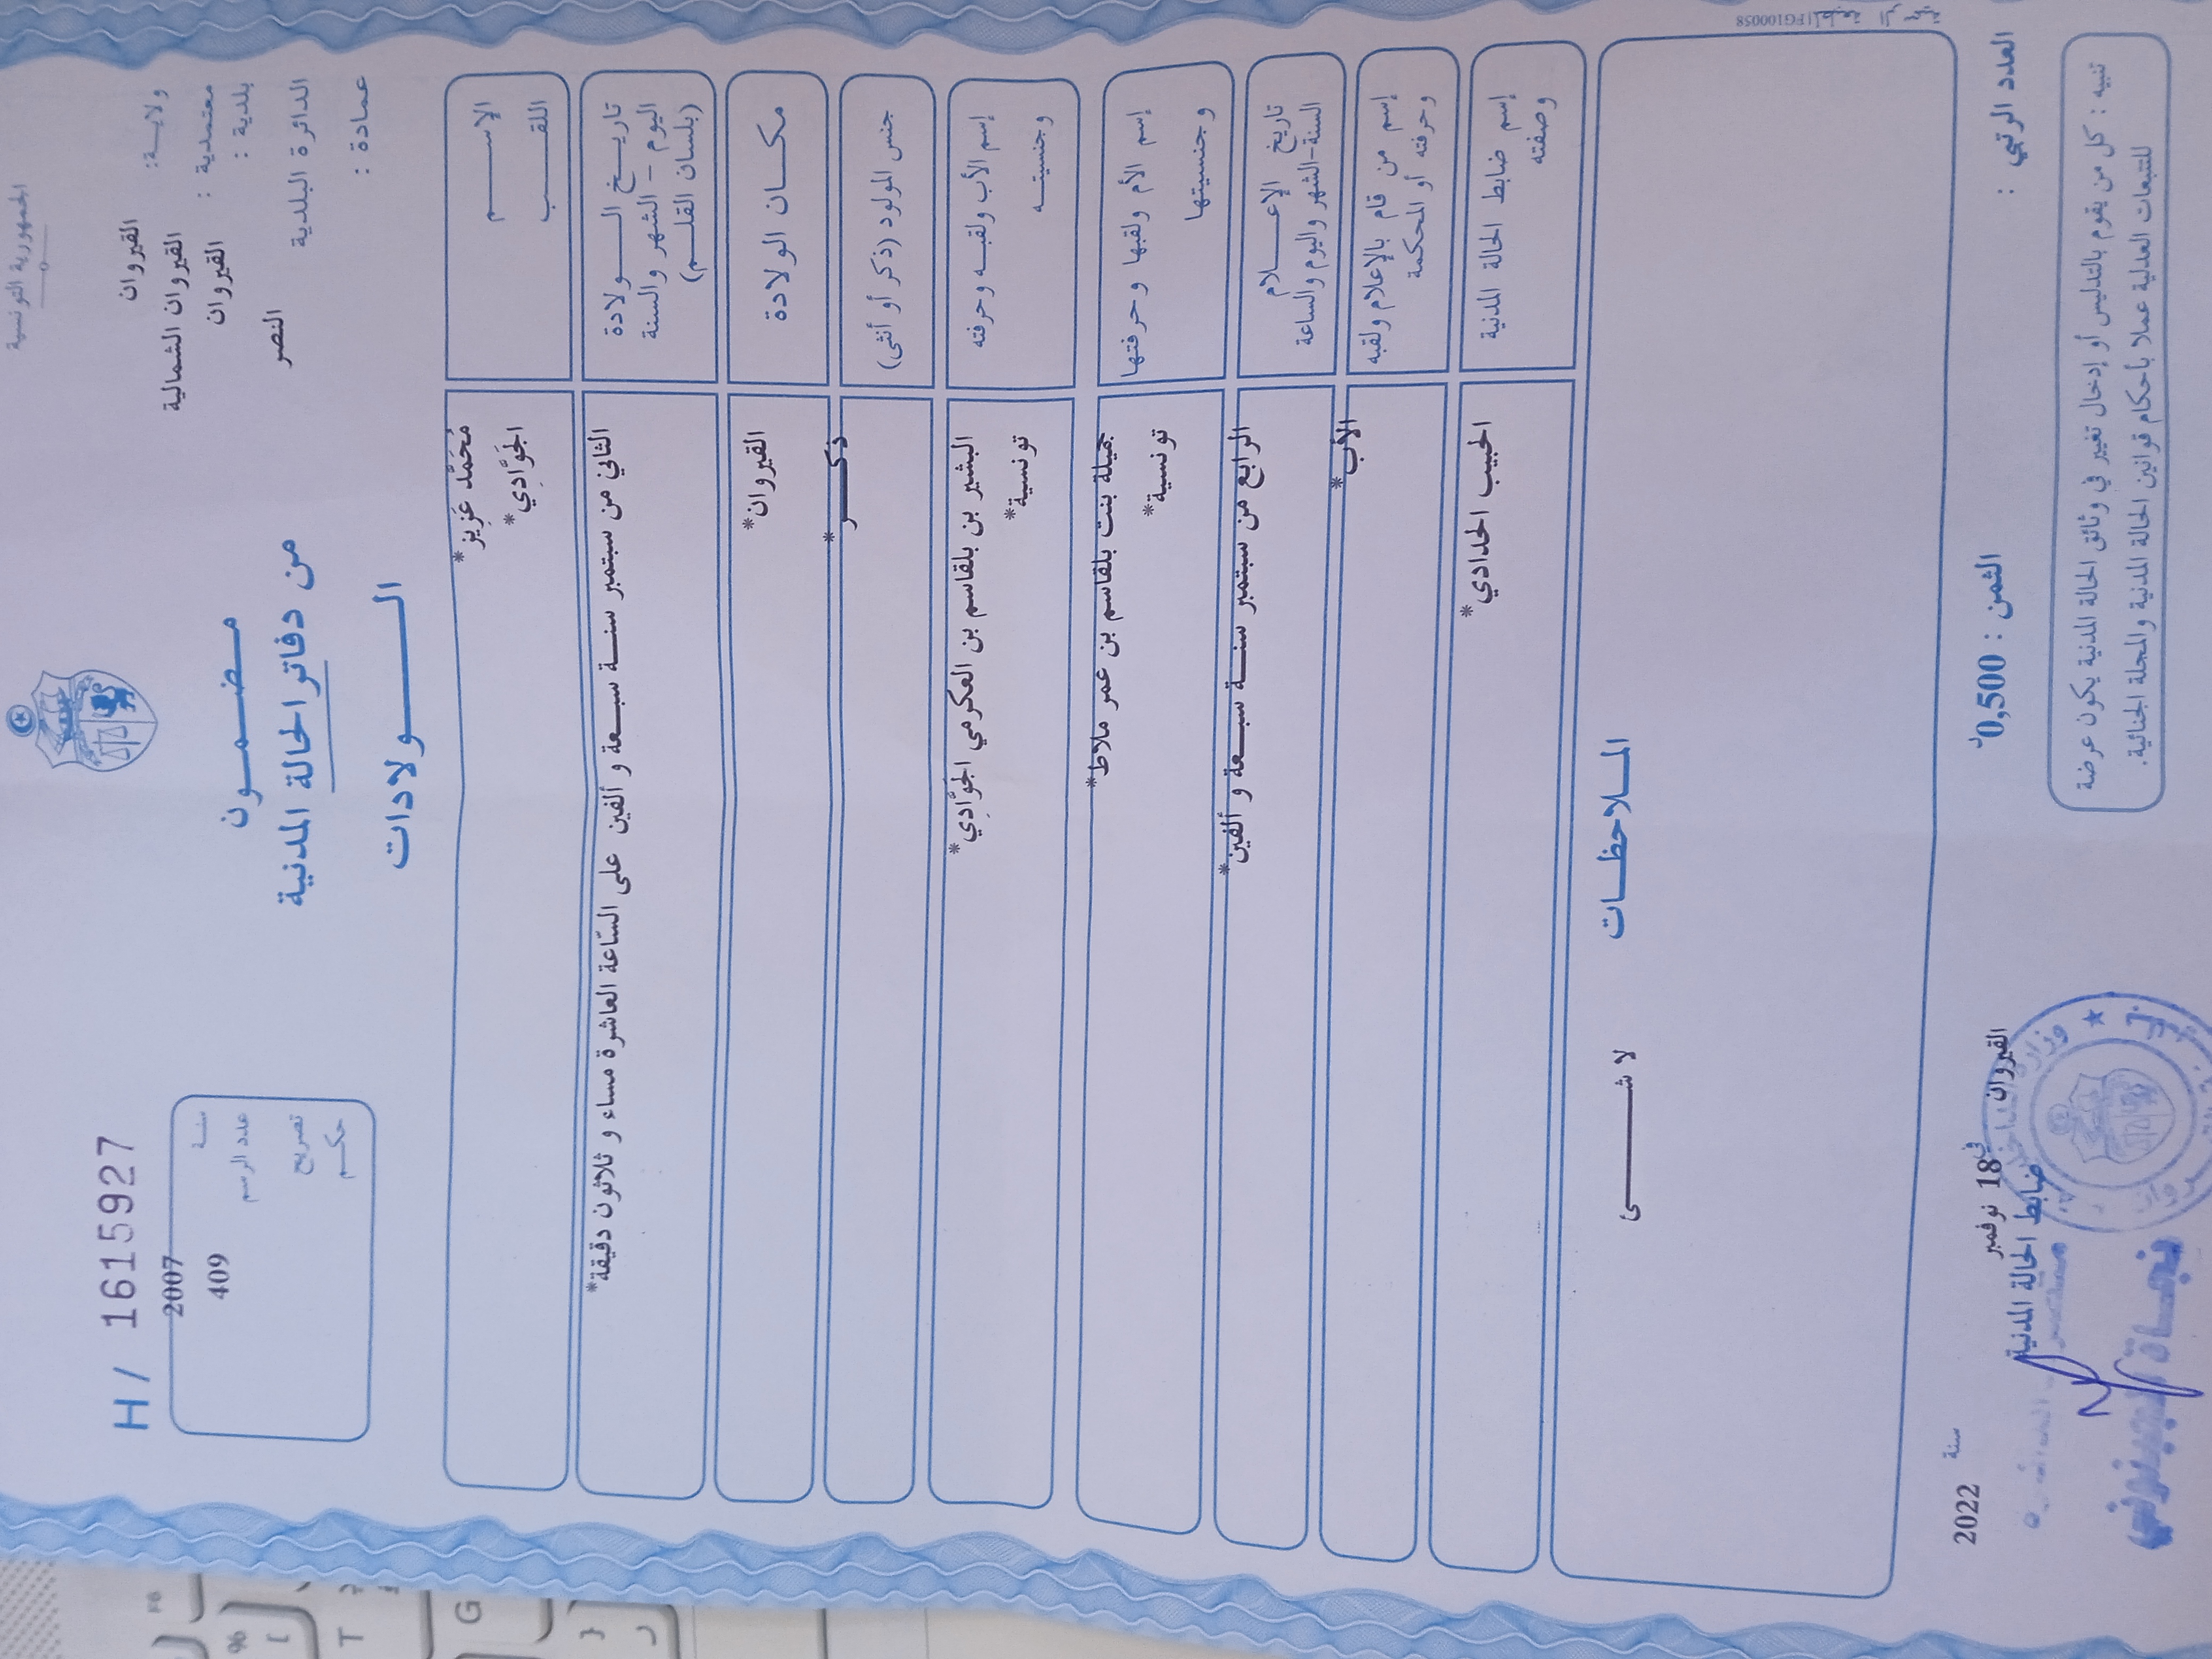 الجمهورية التونسية
H / 1615927
ولايـــة: القيروان
معتمدية : القيروان الشمالية
بلدية : القيروان
الدائرة البلدية النصر
عمادة :
مـــضـــمـــون
من دفاتر الحالة المدنية
الـــــولادات
سنــة 2007
عدد الرسم 409
تصريح
حكــم
الإســــم مُحَمَّد عَزِيز*
اللقـــب الجَوَّادِي*
تاريـــخ الـــــولادة
اليوم - الشهر والسنة
(بلسان القلـــم)
الثاني من سبتمبر سنـــة سبـــعة و ألفين على السّاعة العاشرة مساء و ثلاثون دقيقة*
مكـــان الولادة القيروان*
جنس المولود (ذكر أو أنثى) ذكـــــر*
إسم الأب ولقبـــه وحرفته البشير بن بلقاسم بن العكرمي الجَوَّادِي*
وجنسيتـــه تونسية*
إسم الأم ولقبها وحرفتها جميلة بنت بلقاسم بن عمر ملاط*
وجنسيتها تونسية*
تاريخ الإعـــلام
السنة-الشهر واليوم والساعة
الرابع من سبتمبر سنـــة سبـــعة و ألفين*
إسم من قام بالإعلام ولقبه
وحرفته أو المحكمة
الأب*
إسم ضابط الحالة المدنية
وصفته
الحبيب الحدادي*
المـــلاحظـــات
لا شـــــئ
الطبعة الرسمية FG100058
العدد الرتبي :
الثمن : 0,500د
القيروان في 18 نوفمبر سنة 2022
ضابط الحالة المدنية
تنبيه : كل من يقوم بالتدليس أو إدخال تغيير في وثائق الحالة المدنية يكون عرضة
للتتبعات العدلية عملا بأحكام قوانين الحالة المدنية والمجلة الجنائية.
F6
%
[
T
G
}